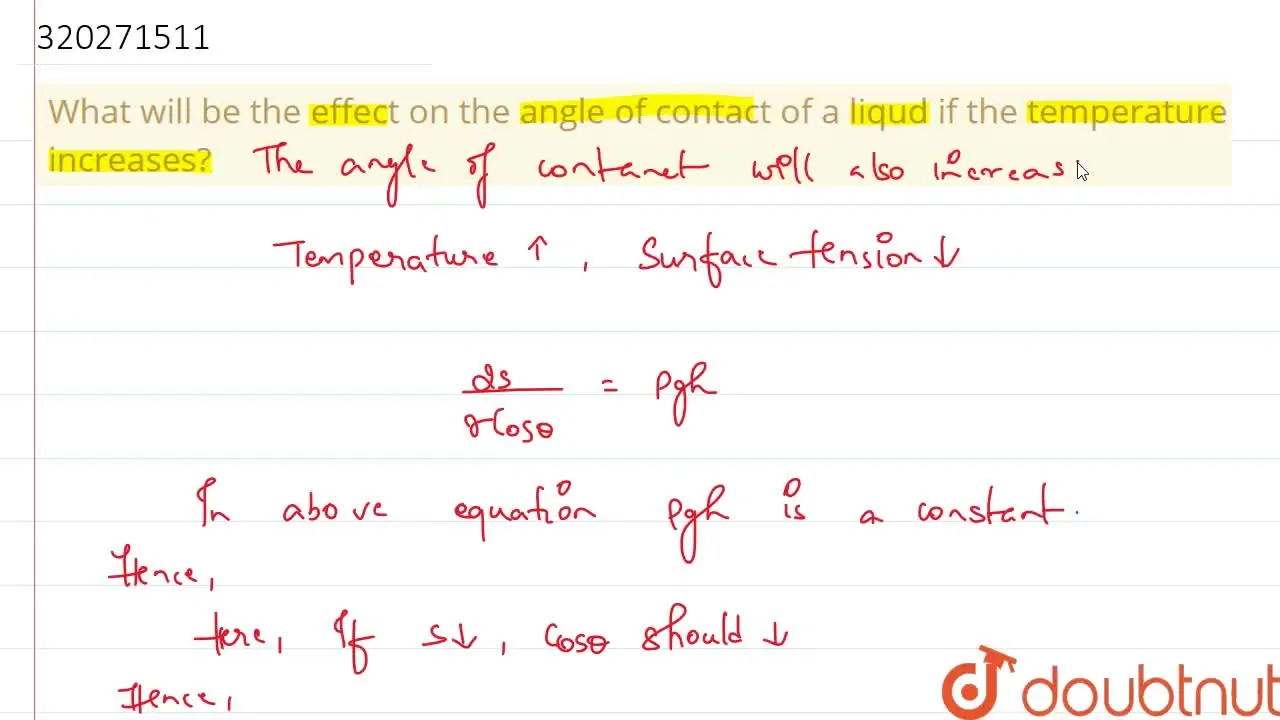 320271511
What will be the effect on the angle of contact of a liqud if the temperature
increases? The angle of contanct will also increas
Temperature ↑ , Surface tension ↓
2s
rCosθ = ρgh
In above equation ρgh is a constant.
Hence,
Here, If s↓ , Cosθ should ↓
Hence,
doubtnut